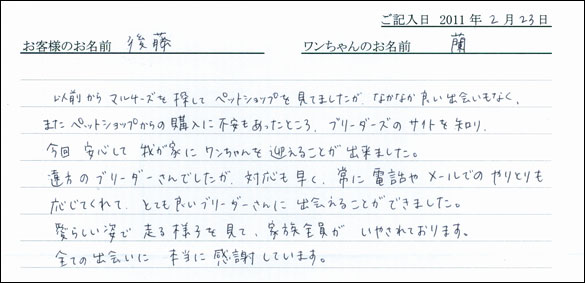 ご記入日 2011年2月23日
お客様のお名前 後藤 ワンちゃんのお名前 蘭
以前からマルチーズを探してペットショップを見てましたが、なかなか良い出会いもなく、
またペットショップからの購入に不安もあったところ、ブリーダーズのサイトを知り、
今回安心して我が家にワンちゃんを迎えることが出来ました。
遠方のブリーダーさんでしたが、対応も早く、常に電話やメールでのやりとりも
応じてくれて、とても良いブリーダーさんに出会えることができました。
愛らしい姿で走る様子を見て、家族全員がいやされております。
全ての出会いに本当に感謝しています。